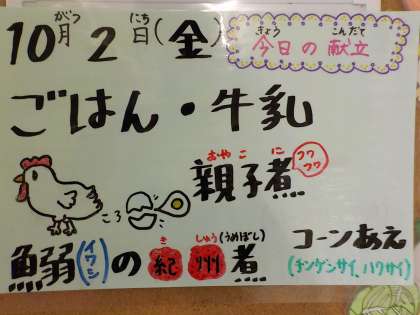 10月 2日(金)
がつ にち
きょう こんだて
今日の献立
ごはん・牛乳
おやこ に
親子煮
フワフワ
ころ
き しゅう(うめぼし)
鰯(イワシ)の紀州煮
コーンあえ
(チンゲンサイ、ハクサイ)